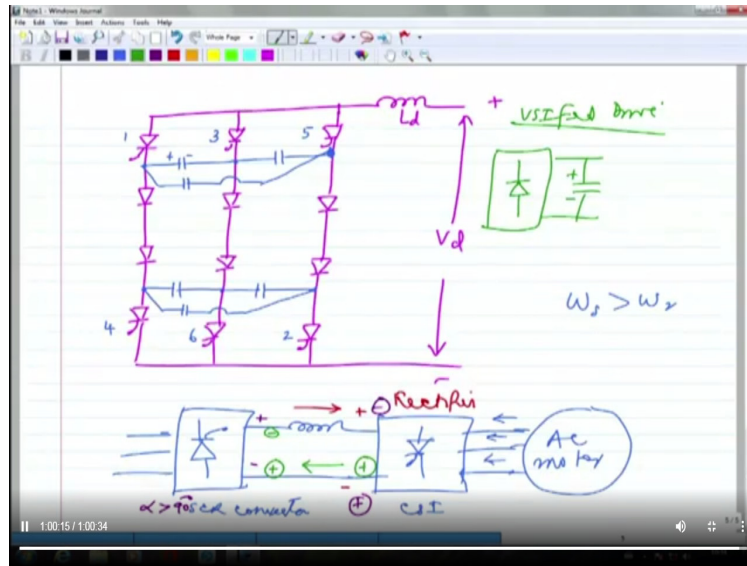 Note1 - Windows Journal
File Edit View Insert Actions Tools Help
Whole Page
B I
+ VSI fed Drive
Ld
1 3 5
+ -
+
-
Vd
ωs > ωr
4 6 2
-
+ → + ⊖ Rectifier
⊖
AC
motor
- ⊕ ← ⊕
-
α > 90° SCR converter ⊕ CSI
1:00:15 / 1:00:34
5 / 5